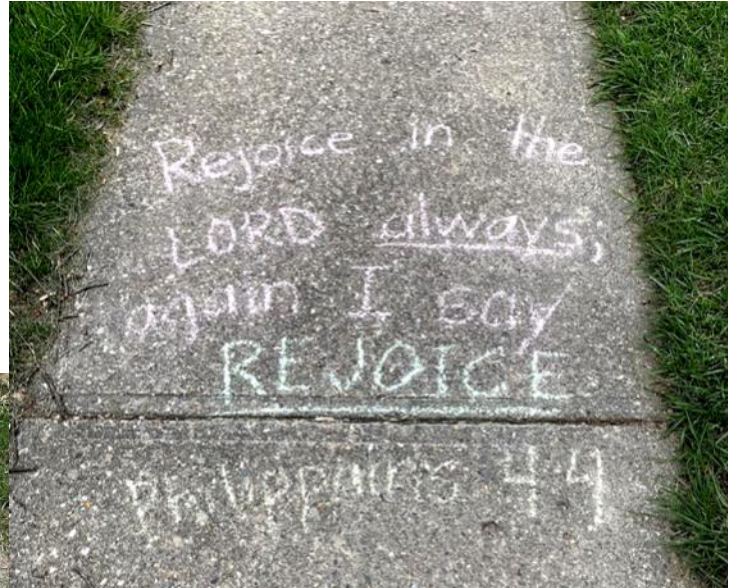 Rejoice in the
LORD always;
again I say
REJOICE
Philippians 4:4